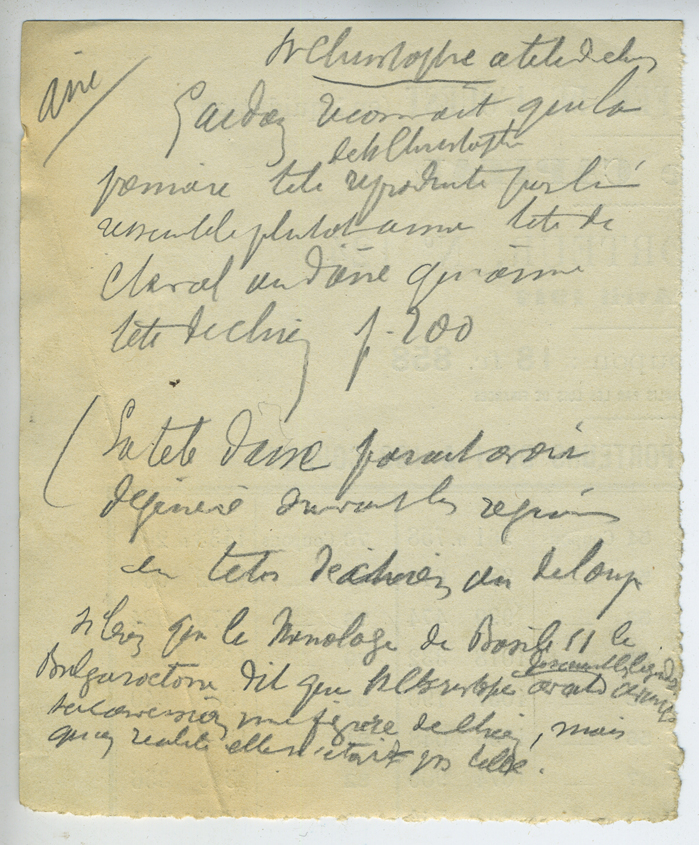 âne
St Christophe a tete de chien
Gaidoz reconnait que la
de St Christophe
premiere tete reproduite par lui
ressemble plutot a une tete de
cheval ou d'âne qu'a une
tete de chien p. 200
(La tete d'ane parait avoir
degeneré suivant les regions
en tetes de chien ou de loup
si bien que le Menologe de Basile II le
Bulgaroctone dit que St Christophe avait
une figure de chien, mais
qu'en realité elle n'etait pas telle.